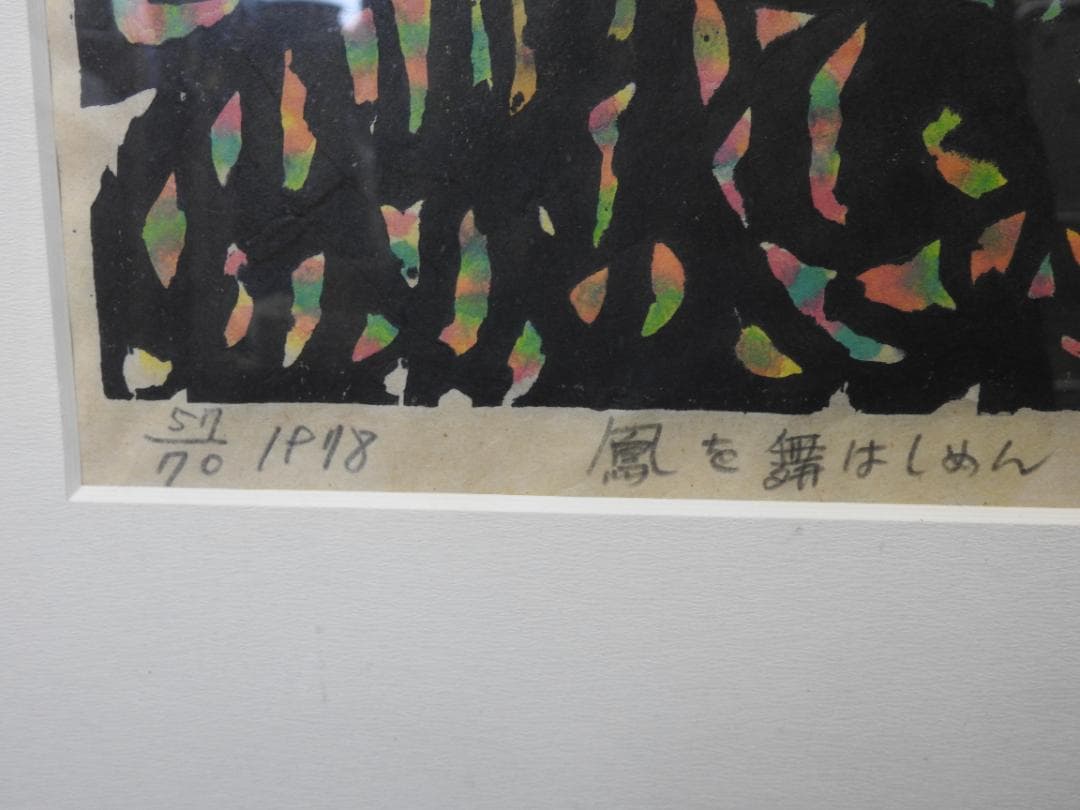 57/70 1978 鳳を舞はしめん